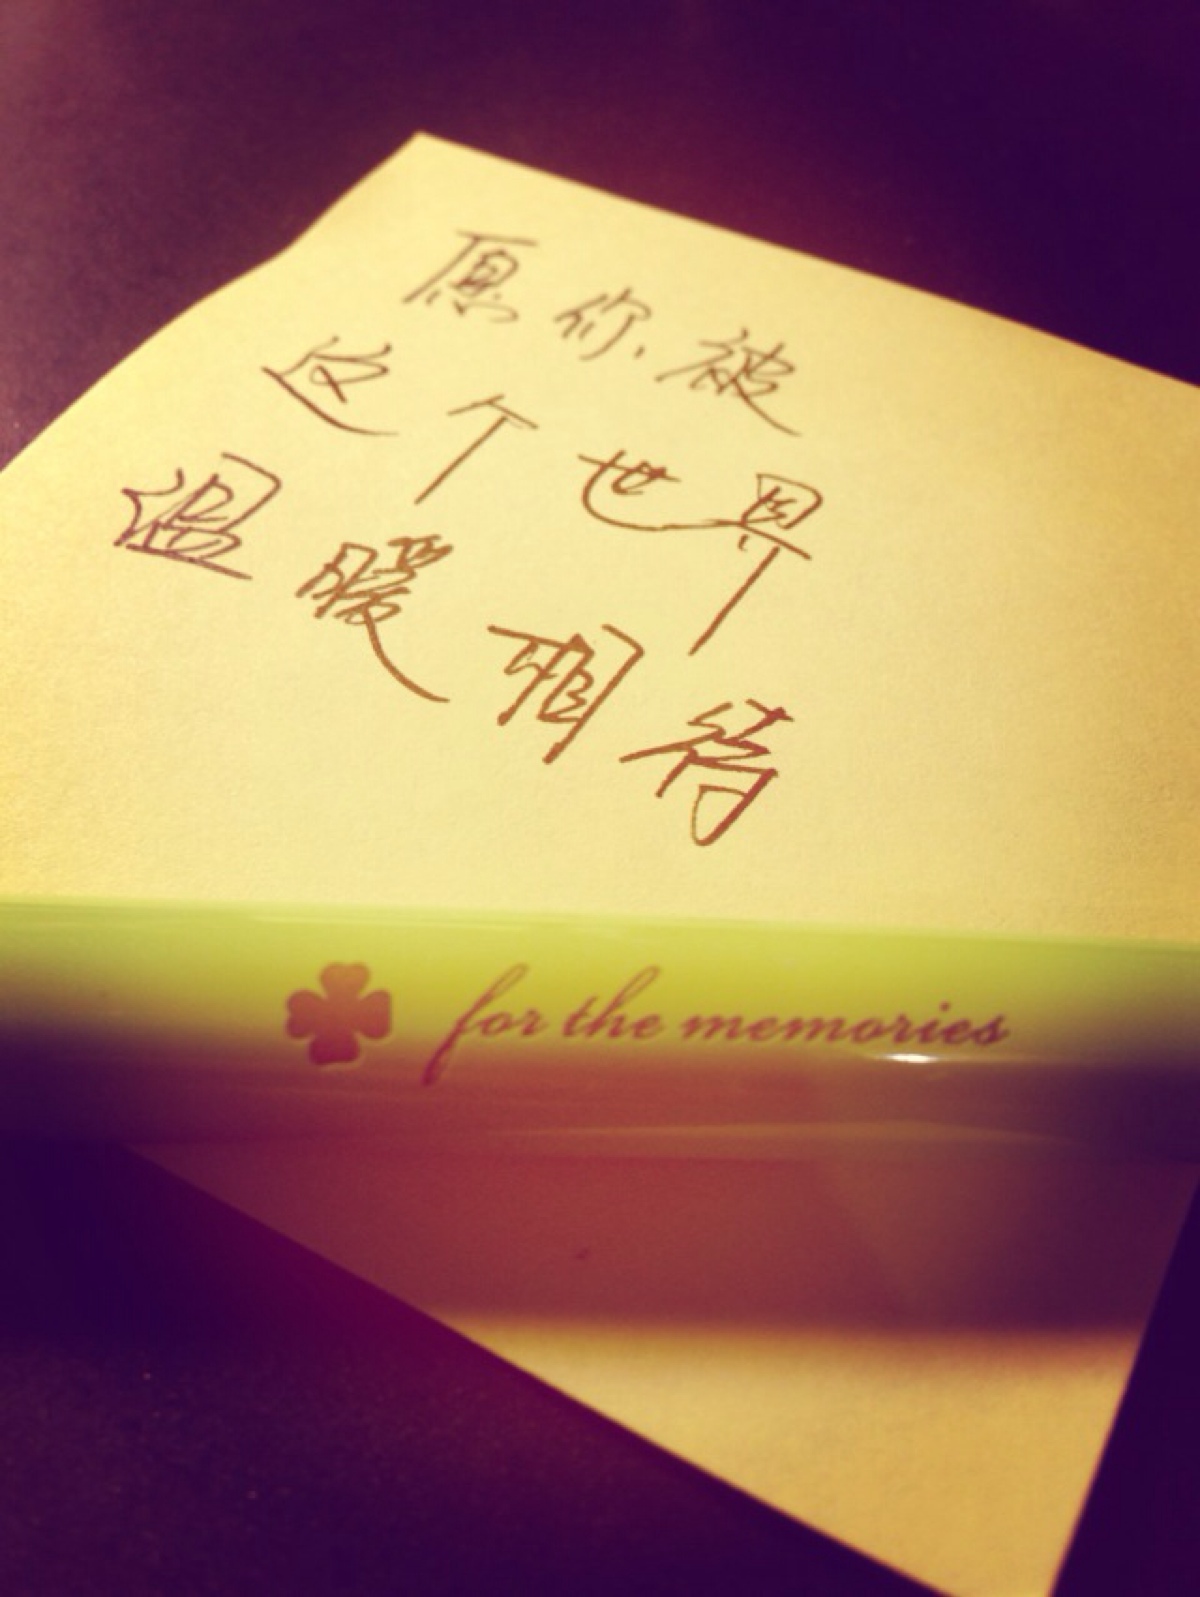 愿你被
这个世界
温暖相待
for the memories